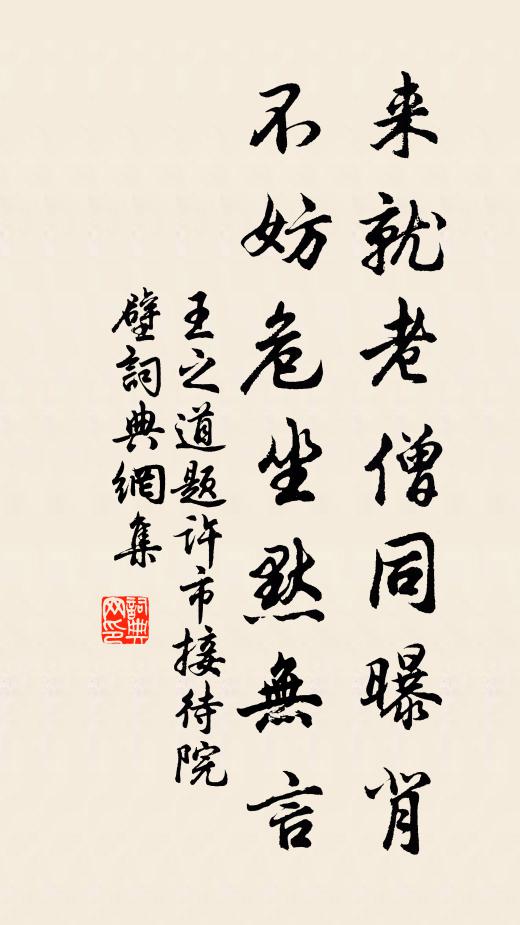 来就老僧同曝背
不妨危坐默無言
王之道题許市接待院
壁詞典網集
詞典网印